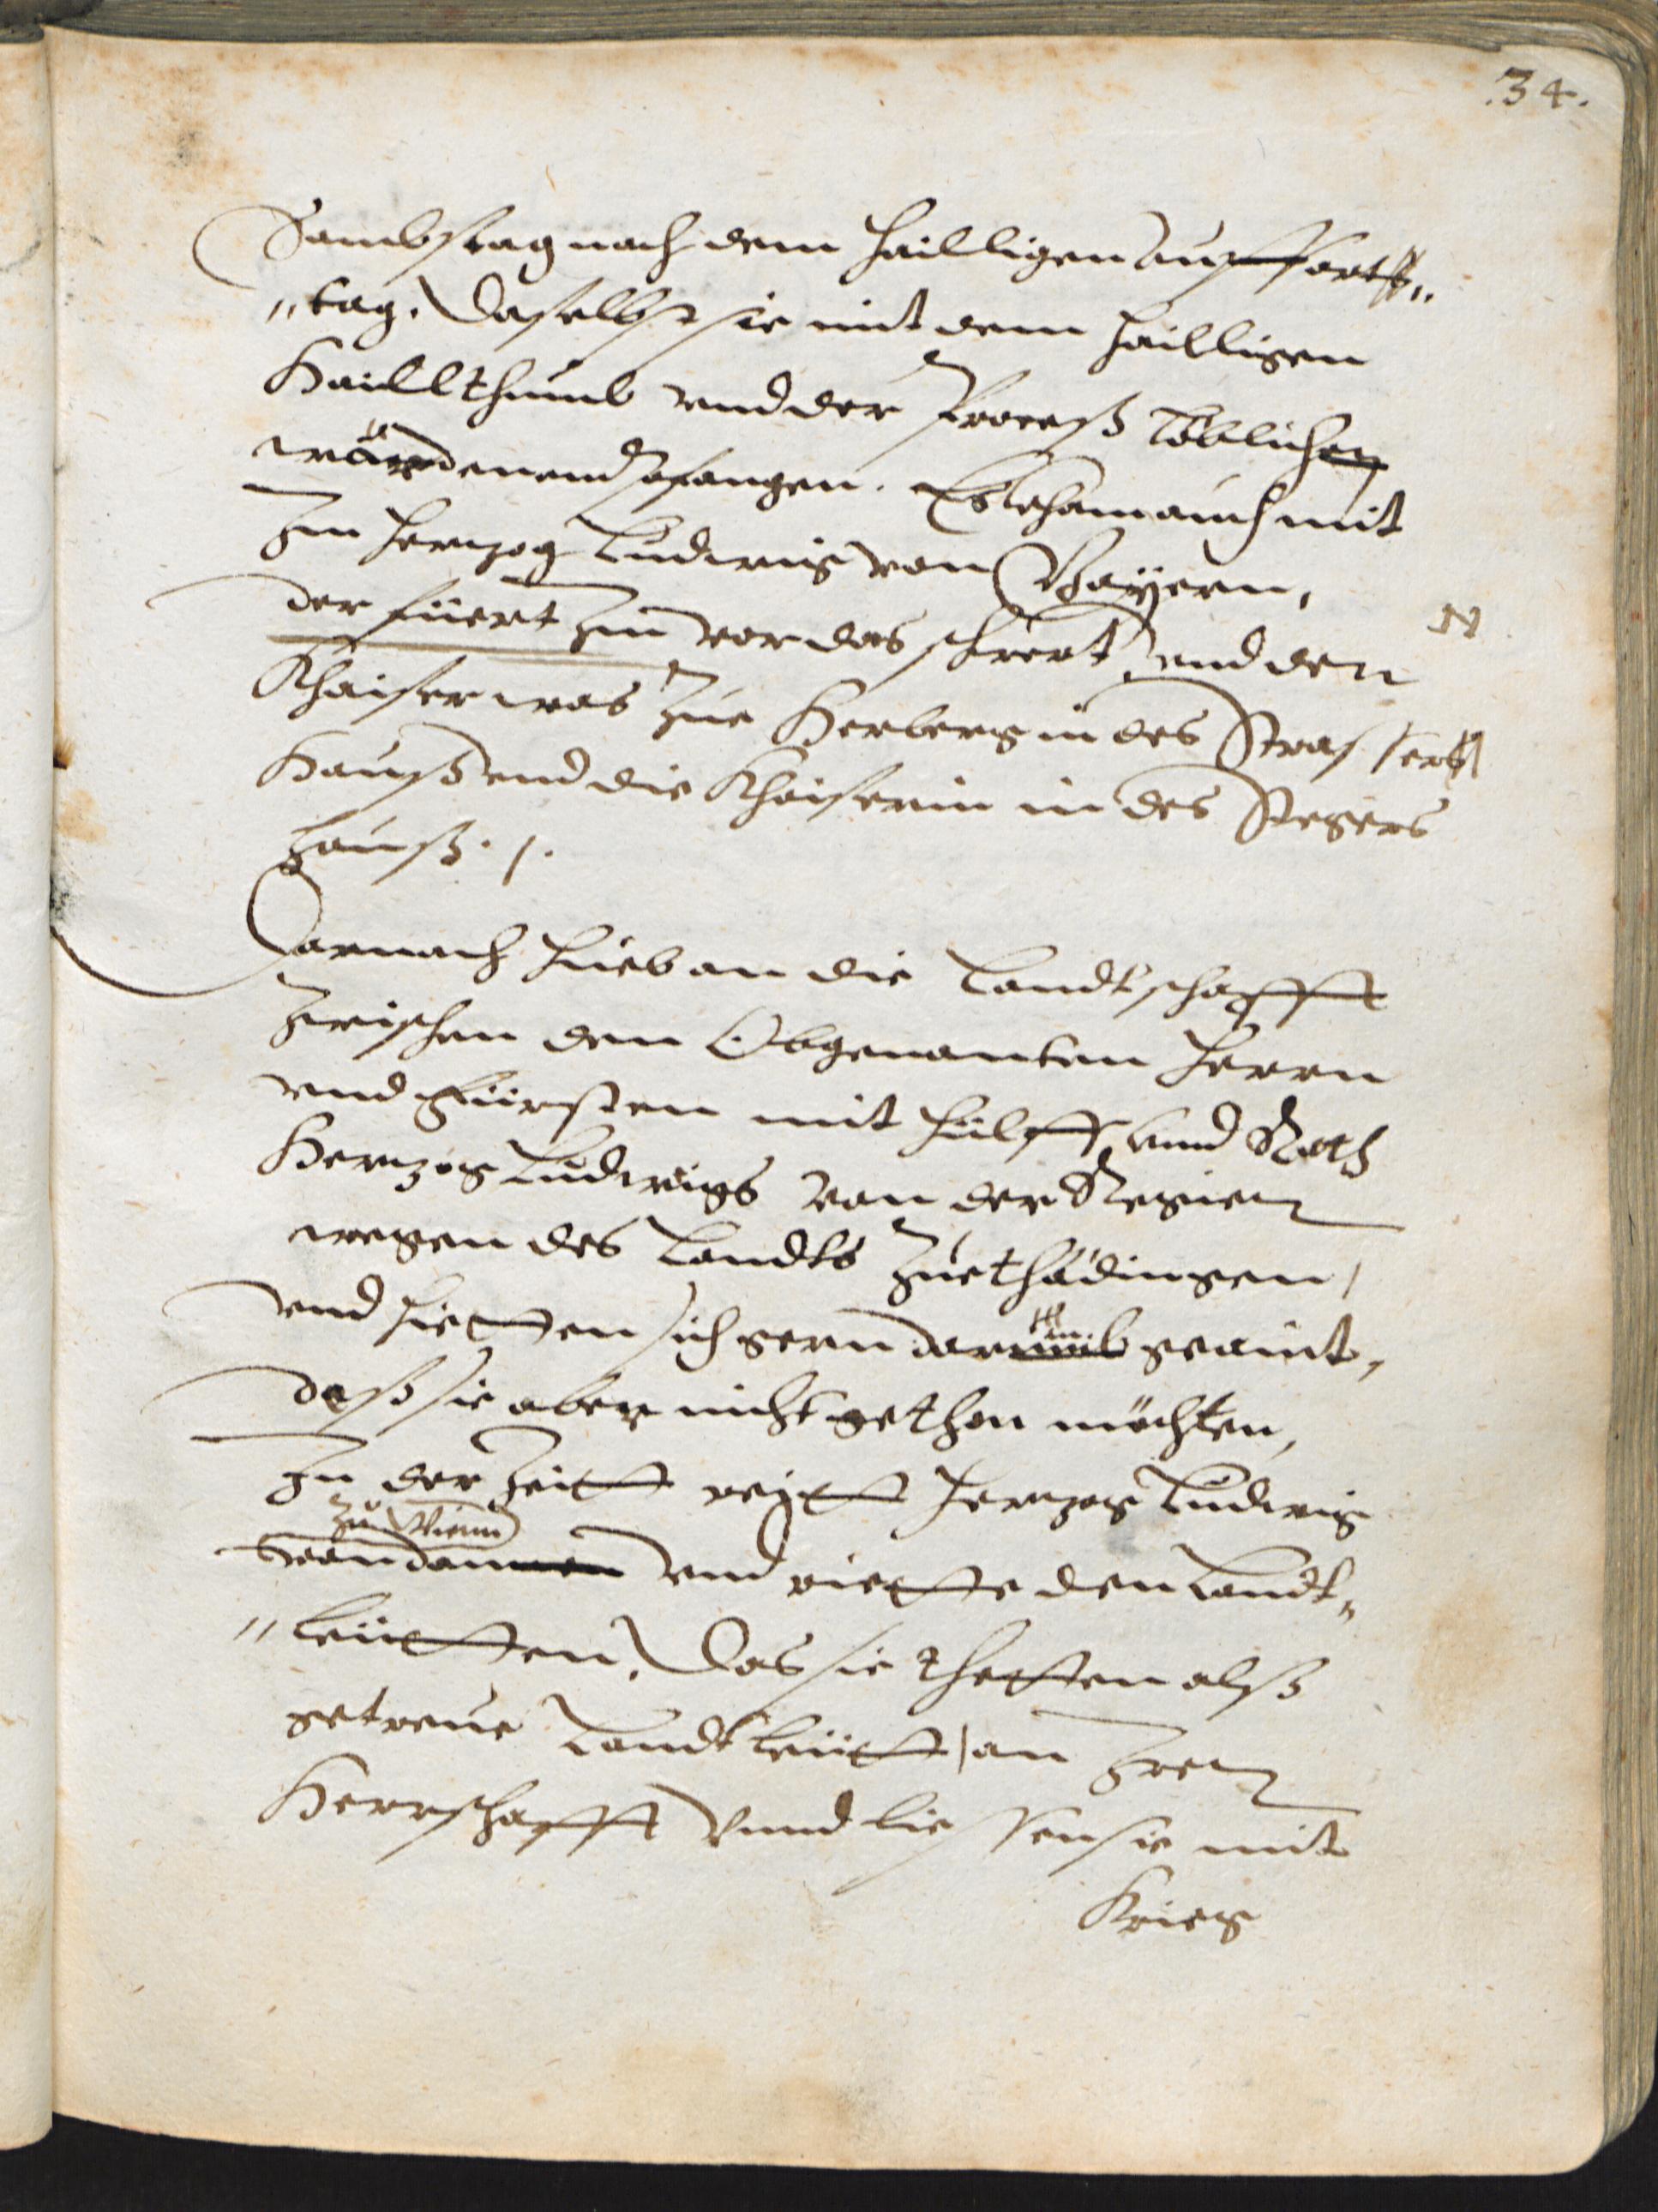 34.
Sambstag nach dem hailligen Auffarth„
„tag. Daselbst sie mit dem hailligen
Haillthumb vnd der Proceß löblichen
wurden empfangen. Es kham auch mit
Im Herzog Ludwig von Bayern,
der füert Im vor das schwert, vnd den N
Khaiser was zue Herberg in des Strassers
Hauß vnd die Khaiserin in des Stegers
hauß. /.
Darnach hueb an die Landtschafft
zwischen den Obgenanten Herrn
vnd Fürsten mit hülff vnnd Rath
Herzog Ludwigs von der Regierung
wegen des Landts zuethädingen,
vnd hietten sich gern darumb geaint,
daß sie aber nicht gethon möchten,
In der Zeitt reitt Herzog Ludwig
zu Wienn
von dannen vnd riette den Landt„
„leütten. Das sie thetten alß
getreue Landtleütt, an Irer
Herrschafft vnnd liessen sie mit
Krieg